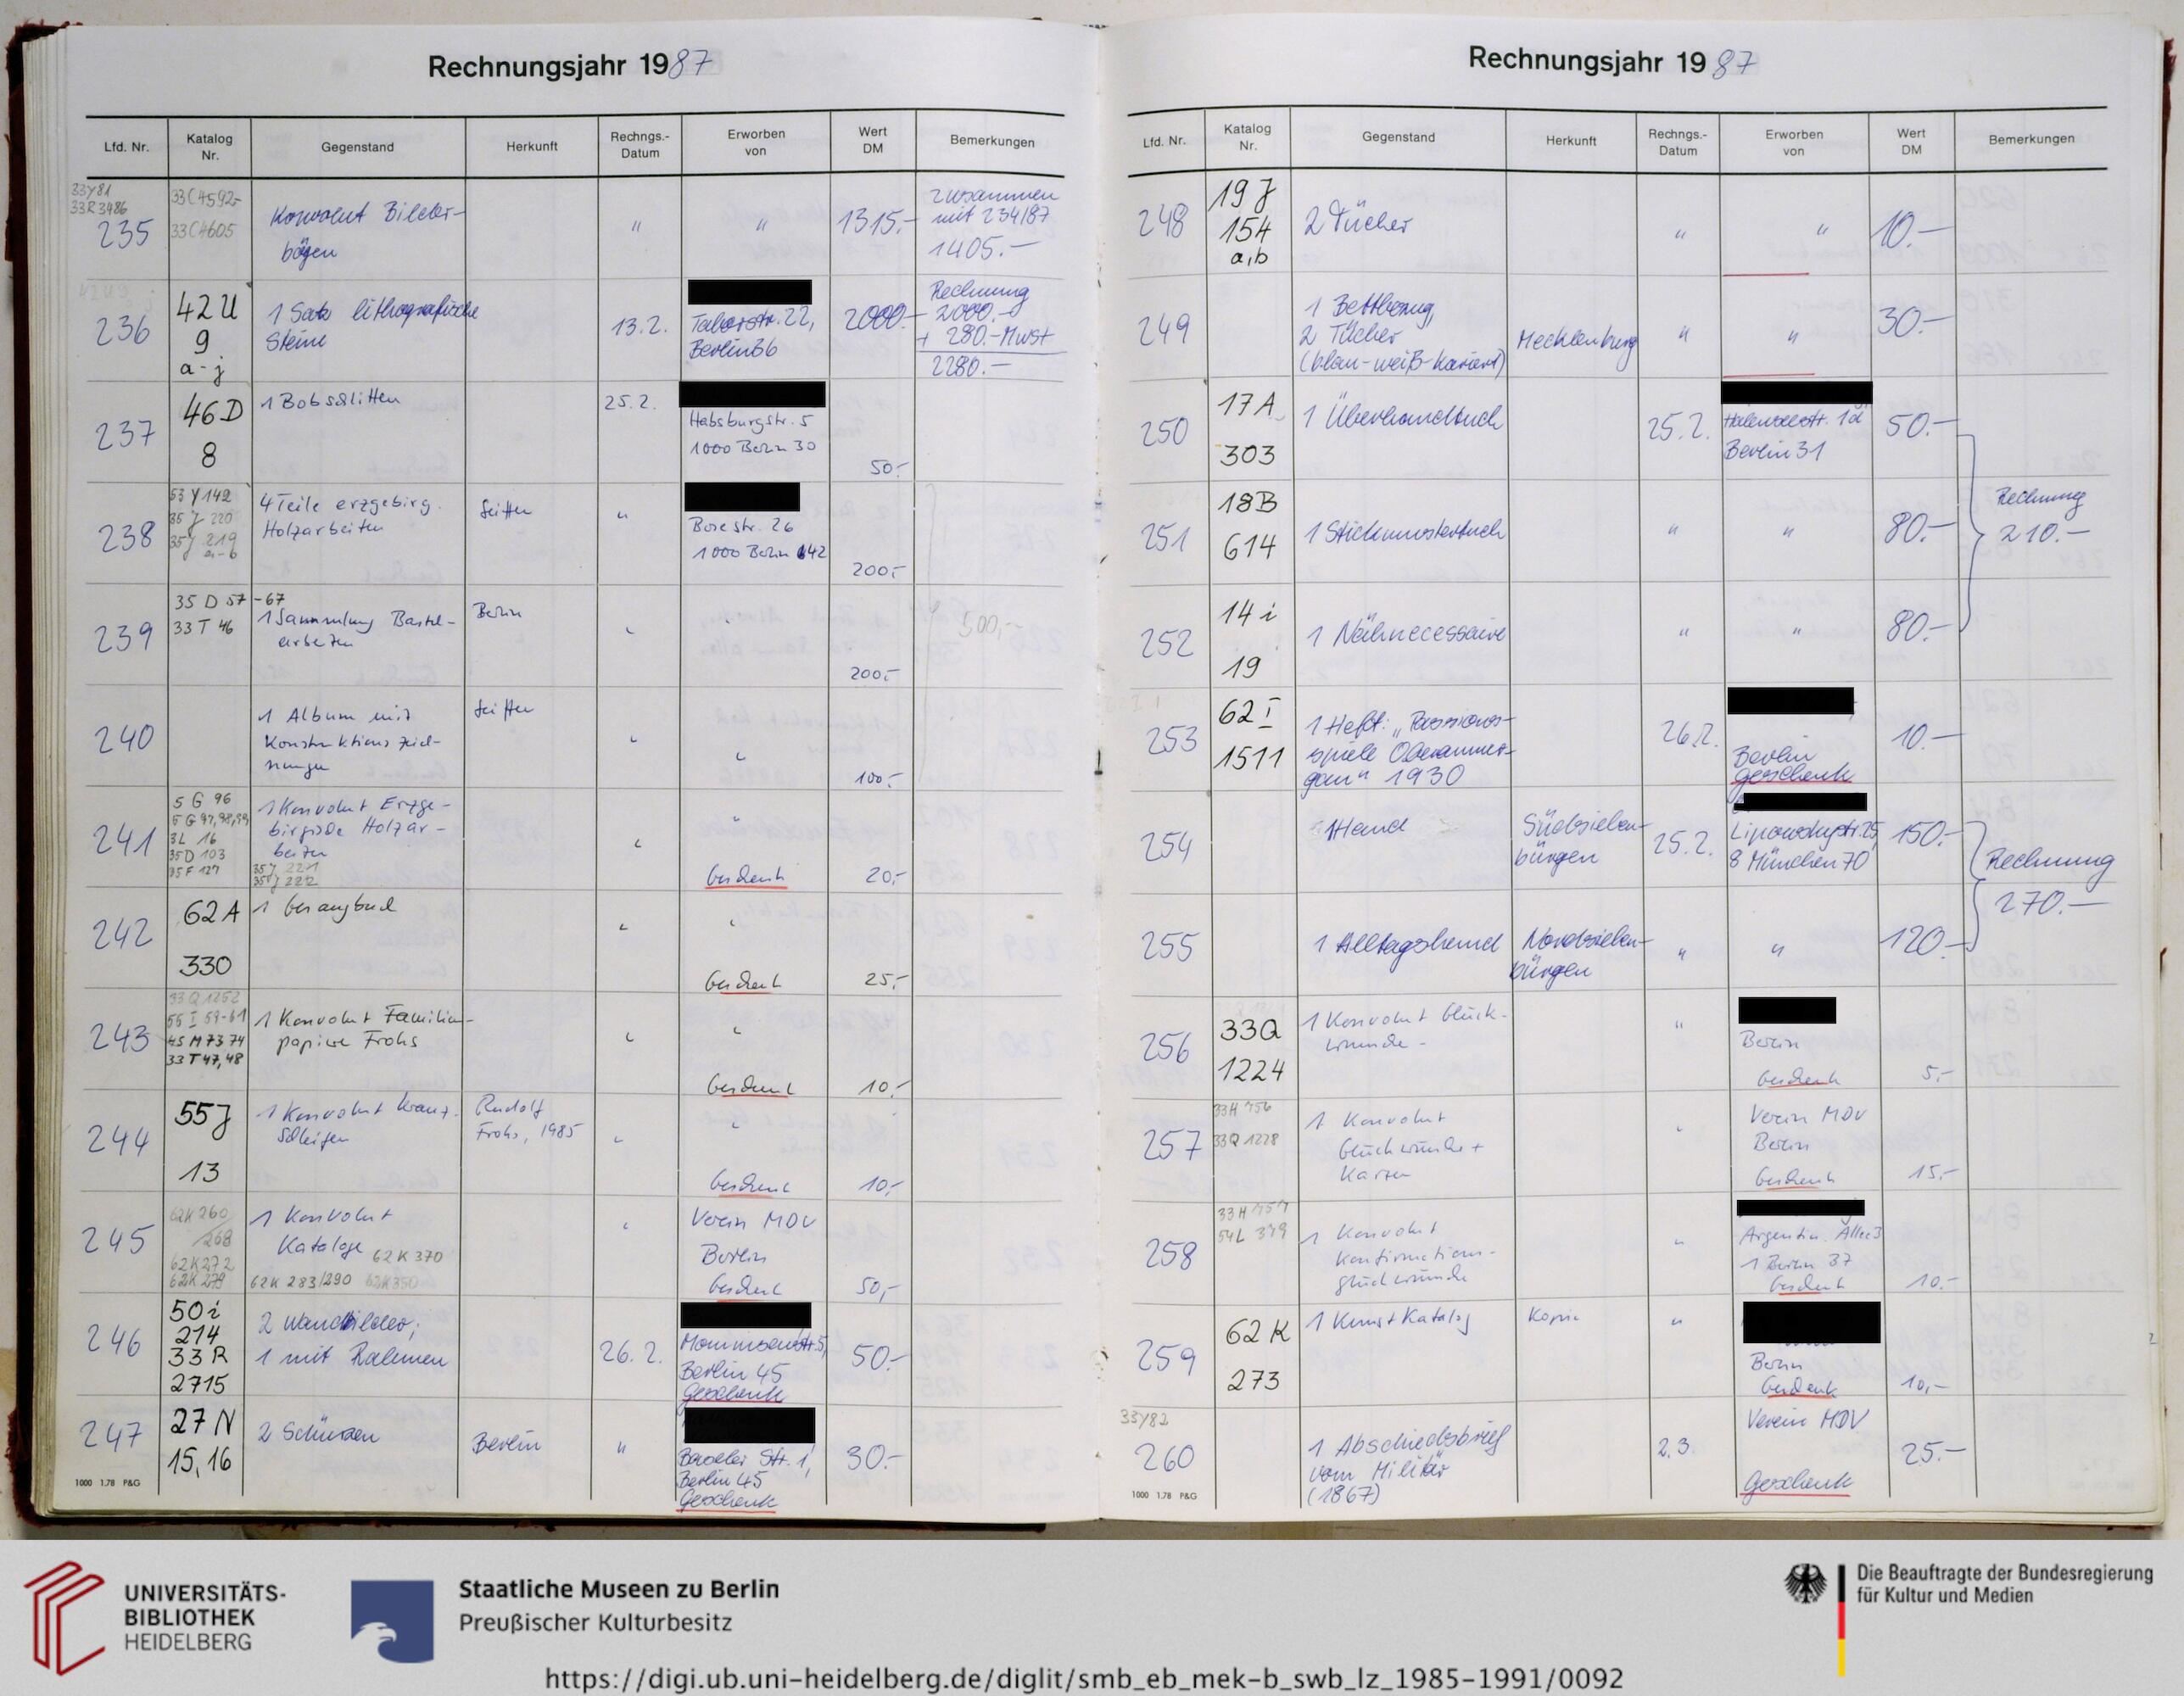 Rechnungsjahr 1987
Lfd. Nr. Katalog Nr. Gegenstand Herkunft Rechngs.-Datum Erworben von Wert DM Bemerkungen
33Y81
33R3486
235 33C4592-
33C4605
Konvolut Bilder-
bögen
" " 1315.-
zusammen
mit 234/87
1405.-
236 42U
9
a-j
1 Satz lithografische
Steine
13.2.
Taborstr. 22,
Berlin 36
2000.-
Rechnung
2000.-
+ 280.-Mwst
2280.-
237 46D
8
1 Bobschlitten
25.2.
Habsburgstr. 5
1000 Berlin 30
50.-
238 53Y142
35J 220
35J 219
a-b
4 Teile erzgebirg.
Holzarbeiten
Seiffen
"
Bosestr. 26
1000 Berlin 42
200.-
239 35 D 57-67
33 T 46
1 Sammlung Bastel-
arbeiten
Berlin
" "
200.-
500,--
240
1 Album mit
Konstruktionszeich-
nungen
Seiffen
" "
100.-
241 5 G 96
5 G 97,98,99
3L 16
35D 103
35F 127
35J 221
35J 222
1 Konvolut Erzge-
birgische Holzar-
beiten
" "
Geschenk
20.-
242 62A
330
1 Gesangbuch
" "
Geschenk
25.-
243 33Q1252
55 I 59-61
45 M 73 74
33 T 47,48
1 Konvolut Familien-
papiere Frohs
" "
Geschenk
10.-
244 55J
13
1 Konvolut Kranz-
schleifen
Rudolf
Frohs, 1985
" "
Geschenk
10.-
245 62K260
/268
62K272
62K279
62K 283/290 62K350
62 K 370
1 Konvolut
Kataloge
"
Verein MDV
Berlin
Geschenk
50,-
246 50i
214
33R
2715
2 Wandbilder;
1 mit Rahmen
26.2.
Mommsenstr. 5,
Berlin 45
Geschenk
50.-
247 27N
15,16
2 Schürzen
Berlin
"
Baseler Str. 1,
Berlin 45
Geschenk
30.-
1000 1.78 P&G
Rechnungsjahr 1987
Lfd. Nr. Katalog Nr. Gegenstand Herkunft Rechngs.-Datum Erworben von Wert DM Bemerkungen
248 19J
154
a,b
2 Tücher
" " 10.-
249
1 Bettbezug,
2 Tücher
(blau-weiß-kariert)
Mecklenburg
" " 30.-
250 17A
303
1 Überhandtuch
25.2.
Berlin 31
50.-
251 18B
614
1 Stickmustertuch
" " 80.-
Rechnung
210.-
252 14i
19
1 Nähnecessaire
" " 80.-
253 62I
1511
1 Heft: „Passions-
spiele Oberammer-
gau" 1930
26.2.
Berlin
Geschenk
10.-
254
1 Hemd
Südsieben-
bürgen
25.2.
8 München 70
150.-
Rechnung
270.-
255
1 Alltagshemd
Nordsieben-
bürgen
" " 120.-
256 33Q
1224
1 Konvolut Glück-
wünsche
"
Berlin
Geschenk
5.-
257 33H 756
33Q 1228
1 Konvolut
Glückwünsche +
Karten
"
Verein MDV
Berlin
Geschenk
15.-
258 33H 757
54L 379
1 Konvolut
Konfirmations-
glückwünsche
"
Argentin. Allee 3
1 Berlin 37
Geschenk
10.-
259 62K
273
1 Kunstkatalog
Kopie
"
Berlin
Geschenk
10,-
33Y82
260
1 Abschiedsbrief
vom Militär
(1867)
2.3.
Verein MDV
Geschenk
25.-
1000 1.78 P&G
UNIVERSITÄTS-
BIBLIOTHEK
HEIDELBERG
Staatliche Museen zu Berlin
Preußischer Kulturbesitz
Die Beauftragte der Bundesregierung
für Kultur und Medien
https://digi.ub.uni-heidelberg.de/diglit/smb_eb_mek-b_swb_lz_1985-1991/0092